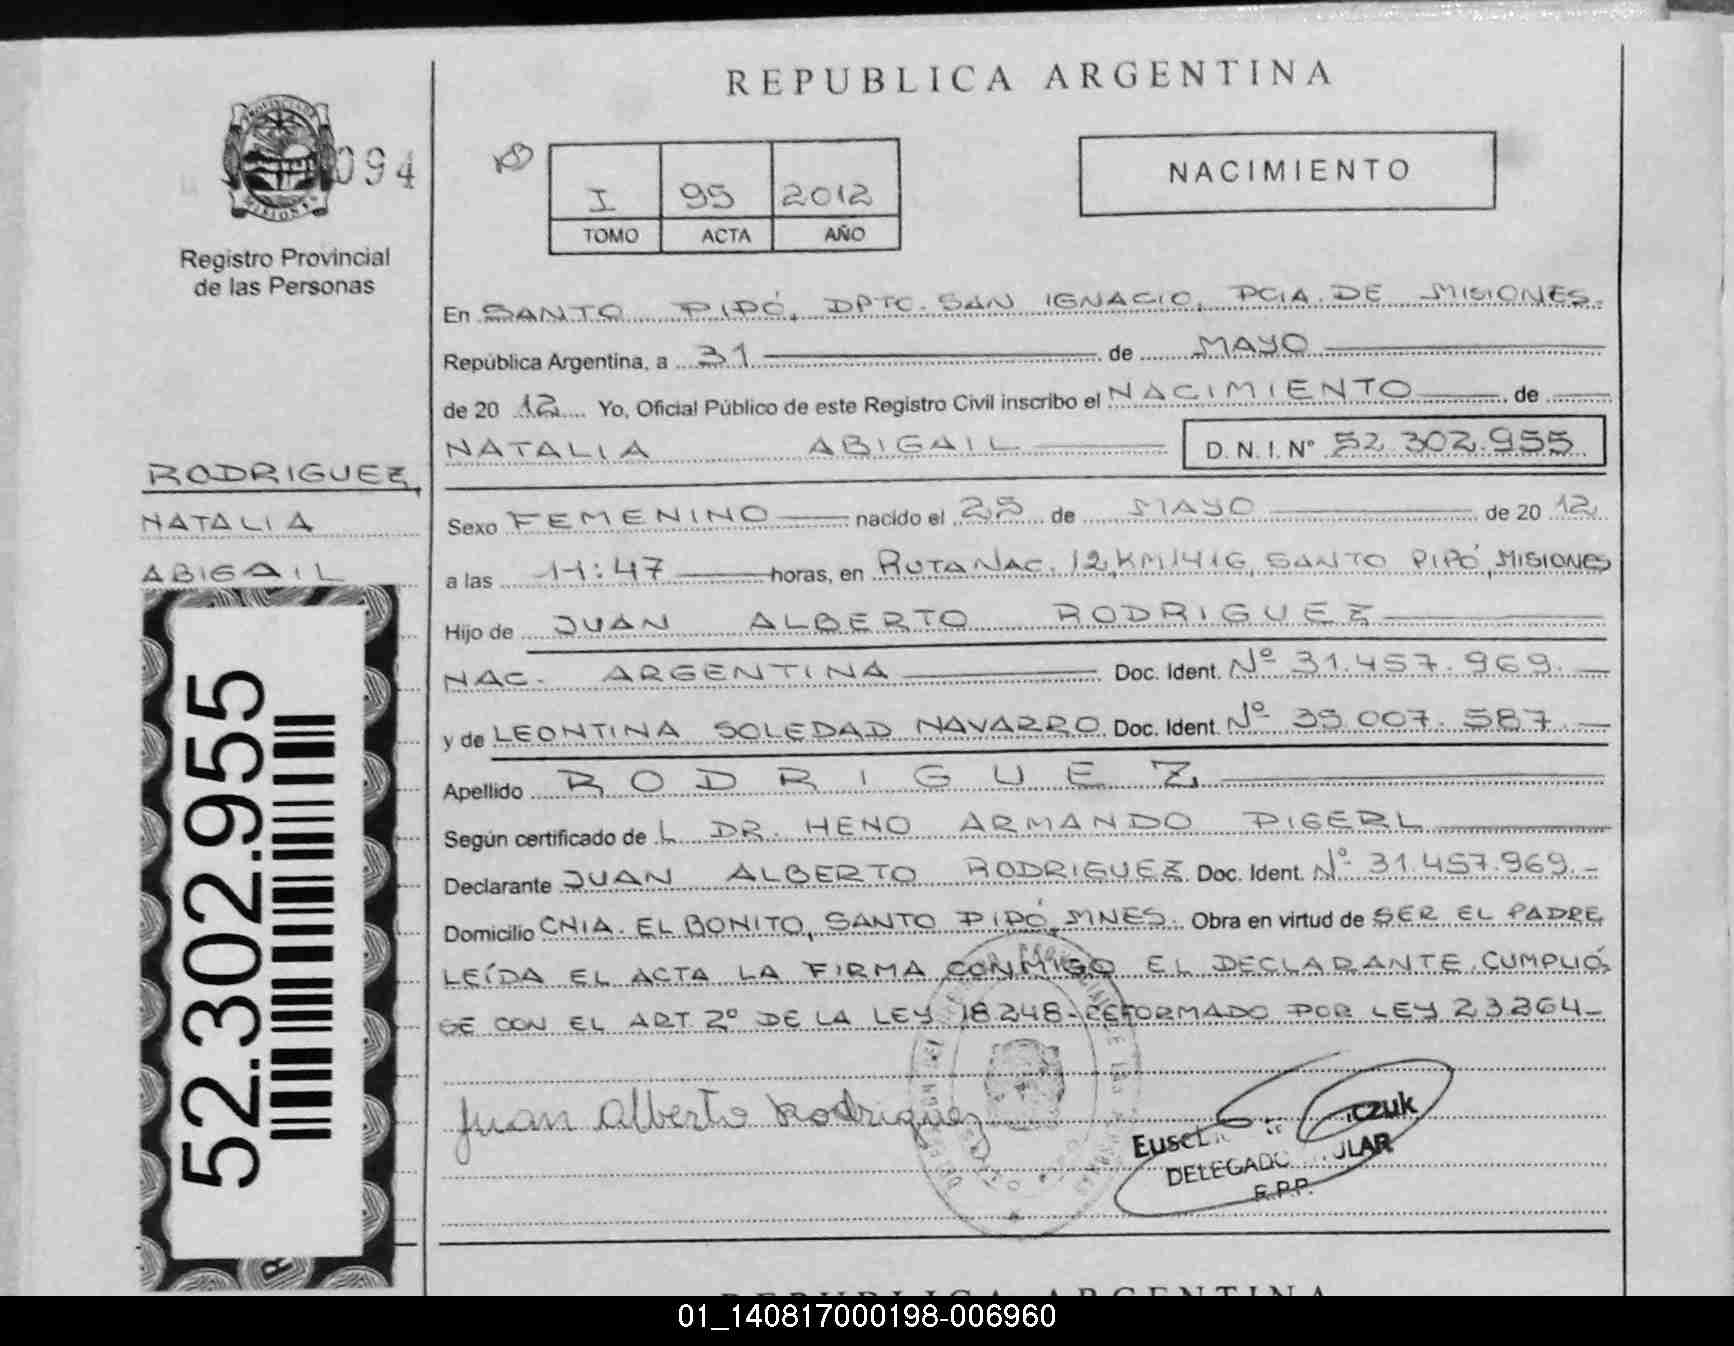 REPUBLICA ARGENTINA
094
Registro Provincial
de las Personas
I 95 2012
TOMO ACTA AÑO
NACIMIENTO
En SANTO PIPÓ, DPTO. SAN IGNACIO, PCIA. DE MISIONES.
República Argentina, a 31 de MAYO
de 20 12 Yo, Oficial Público de este Registro Civil inscribo el NACIMIENTO de
NATALIA ABIGAIL D. N. I. N° 52.302.955
RODRIGUEZ,
NATALIA
ABIGAIL
Sexo FEMENINO nacido el 25 de MAYO de 20 12
a las 11:47 horas, en RUTA NAC. 12, KM 1416, SANTO PIPÓ, MISIONES
Hijo de JUAN ALBERTO RODRIGUEZ
NAC. ARGENTINA Doc. Ident. Nº 31.457.969.
y de LEONTINA SOLEDAD NAVARRO Doc. Ident. Nº 35.007.587.
Apellido RODRIGUEZ
Según certificado de L DR. HENO ARMANDO PIGERL
Declarante JUAN ALBERTO RODRIGUEZ Doc. Ident. Nº 31.457.969.-
Domicilio CNIA. EL BONITO, SANTO PIPÓ, MNES. Obra en virtud de SER EL PADRE
LEÍDA EL ACTA LA FIRMA CONMIGO EL DECLARANTE. CUMPLIÓ
SE CON EL ART. 2º DE LA LEY 18.248-REFORMADO POR LEY 23264-
Juan Alberto Rodriguez
DELEGADO
R.P.P.
52.302.955
REPUBLICA ARGENTINA
01_140817000198-006960